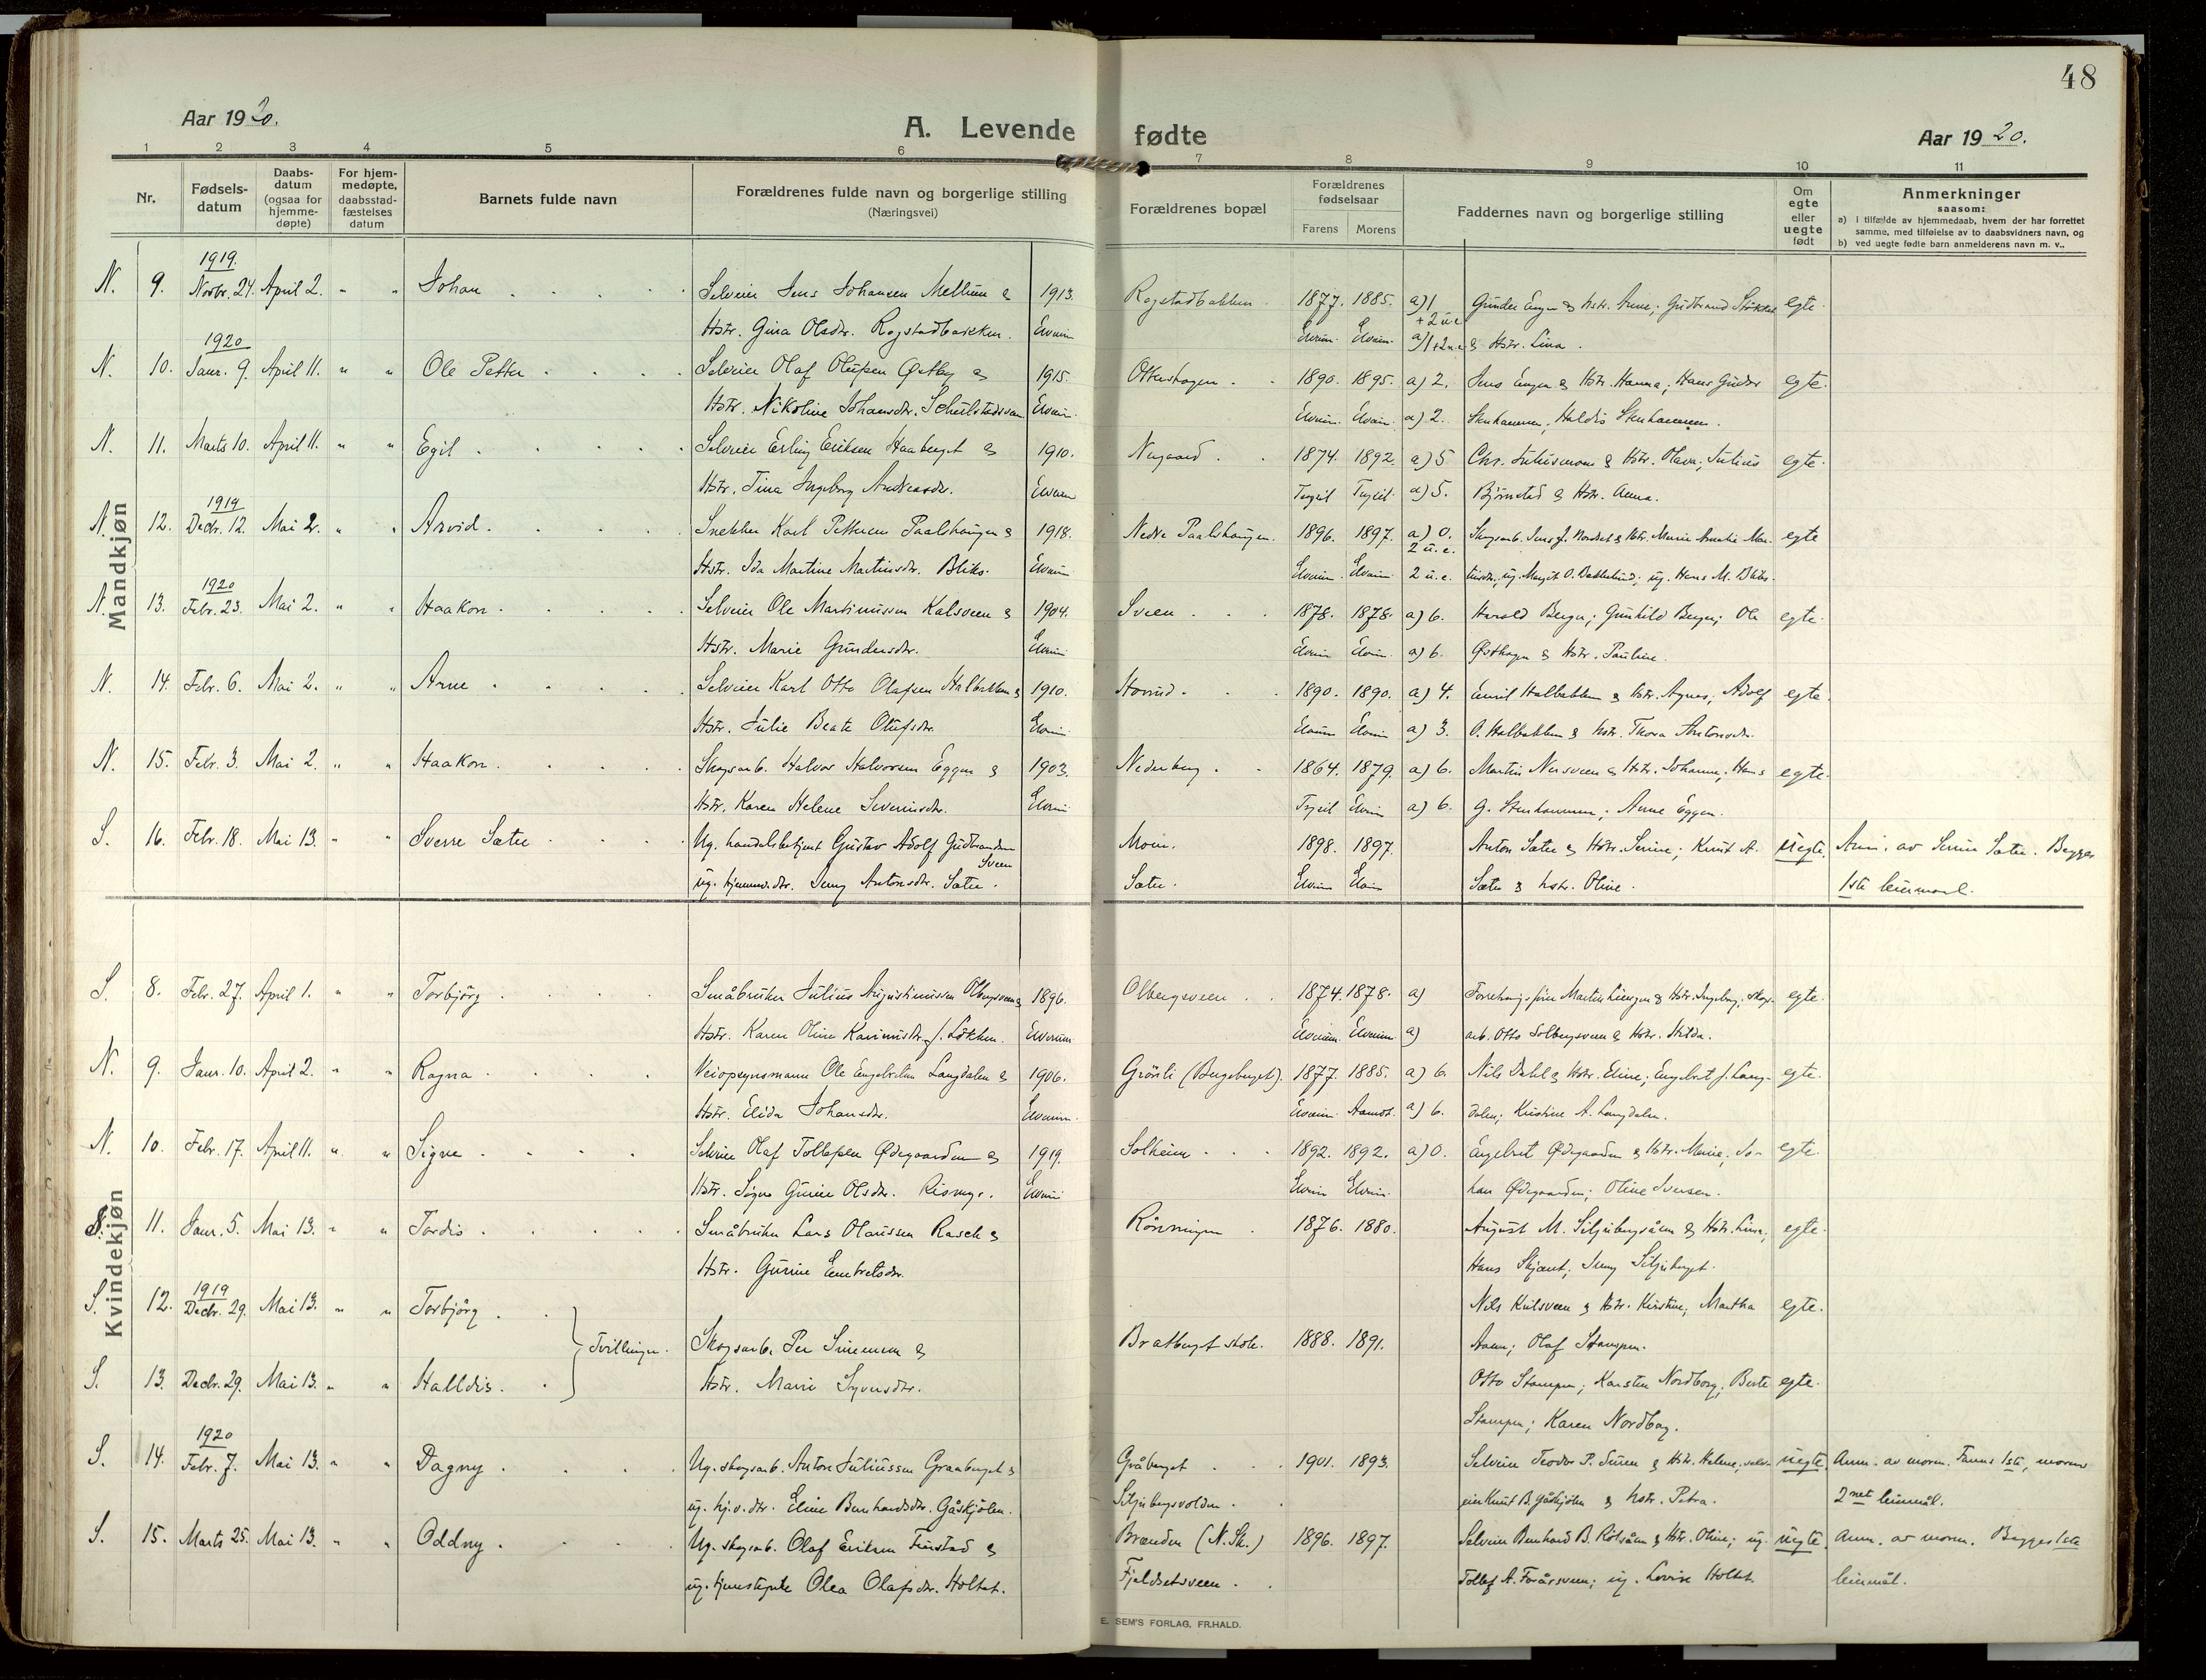 48
Aar 1920.
A. Levende fødte
Aar 1920.
1 2 3 4 5 6 7 8 9 10 11
Nr.
Fødsels-
datum
Daabs-
datum
(ogsaa for
hjemme-
døpte)
For hjem-
medøpte,
daabsstad-
fæstelses
datum
Barnets fulde navn
Forældrenes fulde navn og borgerlige stilling
(Næringsvei)
Forældrenes bopæl
Forældrenes
fødselsaar
Farens Morens
Faddernes navn og borgerlige stilling
Om
egte
eller
uegte
født
Anmerkninger
saasom:
a) i tilfælde av hjemmedaab, hvem der har forrettet
samme, med tilføielse av to daabsvidners navn, og
b) ved uegte fødte barn anmelderens navn m. v..
Mandkjøn
1919.
N. 9. Novbr. 24. April 2. " " Johan Selveier Jens Johansen Mellum & 1913. Rogstadbakken 1877. 1885. a) 1 + 2 u.e. Gunder Enger & Hstr. Anne; Gudbrand egte.
Hstr. Gina Olsdtr. Rogstadbakken. Elverum Elverum. Elverum. a) 1 + 2 u.e. & Hstr. Lina.
1920
N. 10. Janr. 9. April 11. " " Ole Petter Selveier Olaf Olufsen Østby & 1915. Ottershagen 1890. 1895. a) 2. Jens Enger & Hstr. Hanna; Hans Gunder egte.
Hstr. Nikoline Johansdtr. Elverum. Elverum. Elverum. a) 2. Stenhammer, Haldis Stenhammer.
N. 11. Marts 10. April 11. " " Egil Selveier Erling Eriksen Haaberget & 1910. Nygaard 1874. 1892. a) 5 Chr. Juliusmoen & Hstr. Olava; Julius egte.
Hstr. Tina Ingeborg Andreasdtr. Elverum Trysil Trysil. a) 5. Bjørnstad & Hstr. Anna.
1919
N. 12. Decbr. 12. Mai 2. " " Arvid. Snekker Karl Pettersen Paalshaugen & 1918. Nedre Paalshaugen. 1896. 1897. a) 0. 2 u.e. Skogsarb. Jens J. Nordset & Hstr. Marie Amalie Mar- egte
Hstr. Ida Martine Martinsdtr. Bliks. Elverum Elverum. Elverum. 2 u.e. tinsdtr., ug. Margit O. Bakkelund; ug. Hans M. Bliks.
1920
N. 13. Febr. 23. Mai 2. " " Haakon Selveier Ole Martinussen Kalsveen & 1904. Sveen 1878. 1878. a) 6. Harald Berger; Gunhild Berger; Ole egte.
Hstr. Marie Gundersdtr. Elverum Elverum Elverum. a) 6. Østhagen & Hstr. Pauline.
N. 14. Febr. 6. Mai 2. " " Arne Selveier Karl Otto Olafsen Halbakken & 1910. 1890. 1890. a) 4. Emil Halbakken & Hstr. Agnes; Adolf egte.
Hstr. Julie Beate Olufsdtr. Elverum Elverum Elverum a) 3. O. Halbakken & Hstr. Thora Antonsdtr.
N. 15. Febr. 3. Mai 2. " " Haakon Skogsarb. Halvor Halvorsen Eggen & 1903. Nederberg 1864. 1879. a) 6. Martin Nersveen & Hstr. Johanne; Hans egte.
Hstr. Karen Helene Severinsdtr. Elverum Trysil Elverum a) 6. G. Stenhammer; Anne Eggen.
S. 16. Febr. 18. Mai 13. " " Sverre Sæter Ug. handelsbetjent Gustav Adolf Gudbrandsen Moen. 1898. 1897. Anton Sæter & Hstr. Serine; Knut A. uegte. Anm. av Serine Sæter. Begges
Sveen
ug. hjemmev. dtr. Jenny Antonsdtr. Sæter. Sæter. Elverum Elverum Sæter & hstr. Oline. 1ste leiermaal.
Kvindekjøn
S. 8. Febr. 27. April 1. " " Torbjörg Småbruker Julius Augustinussen Olbergsveen & 1896. Olbergsveen 1874. 1878. a) Forretningsfører Martin & Hstr. Ingeborg; skogs- egte.
Hstr. Karen Oline f. Løkken. Elverum. Elverum. Elverum a) arb. Otto Solbergsveen & Hstr. Hilda.
N. 9. Janr. 10. April 2. " " Ragna Veiopsynsmann Ole Engebretsen Langdalen & 1906. Grönli (Bergeberget). 1877. 1885. a) 6. Nils Dahl & Hstr. Eline; Engebret J. Lang- egte.
Hstr. Elida Johansdtr. Elverum. Elverum. Aamot. a) 6. dalen; Kristine A. Langdalen.
N. 10. Febr. 17. April 11. " " Signe Selveier Olaf Tollefsen Ødegaarden & 1919. Solheim 1892. 1892. a) 0. Engebret Ødegaarden & Hstr. Marie; Jo- egte.
Hstr. Signe Gurine Olsdtr. Rismyr. Elverum Elverum Elverum. han Ødegaarden; Oline Iversen.
S. 11. Janr. 5. Mai 13. " " Tordis Småbruker Lars Olaussen Rasch & Rönningen 1876. 1880. August M. Siljubergsåsen & Hstr. Lina; egte.
Hstr. Gurine Embretsdtr. Hans Skjæret; Jenny Siljuberget.
1919
S. 12. Decbr. 29. Mai 13. " " Torbjörg Nils Kulsveen & Hstr. Kirstine; Martha egte.
Tvillinger. Skogsarb. Per Simensen & Bratberget skole. 1888. 1891. Aasen; Olaf Stampen.
S. 13. Decbr. 29. Mai 13. " " Halldis. Hstr. Marie Syversdtr. Otto Stampen; Karsten Nordborg; Berte egte.
Stampen; Karen Nordbog.
1920
S. 14. Febr. 7. Mai 13. " " Dagny Ug. skogsarb. Anton Juliussen Graaberget & Gråberget 1901. 1893. Selveier Teodor P. & Hstr. Helene; selv- uegte. Anm. av moren. Farens 1ste, morens
ug. hj.v. dtr. Eline Bernhardsdtr. Gåskjølen. Siljubergsvolden. eier Knut B. Gåskjølen & hstr. Petra. 2net leiermål.
S. 15. Marts 25. Mai 13. " " Oddny Ug. skogsarb. Olaf Eriksen Finstad & Brænden (N. Sk.) 1896. 1897. Selveier Bernhard B. Rötsåsen & Hstr. Oline; ug. uegte. Anm. av moren. Begges 1ste
ug. tjenestepike Olea Olafsdtr. Holtet. Fjeldsetsveen. Tollef A. Forårsveen; ug. Lovise Holtet. leiermål.
E. SEM'S FORLAG, FR.HALD.